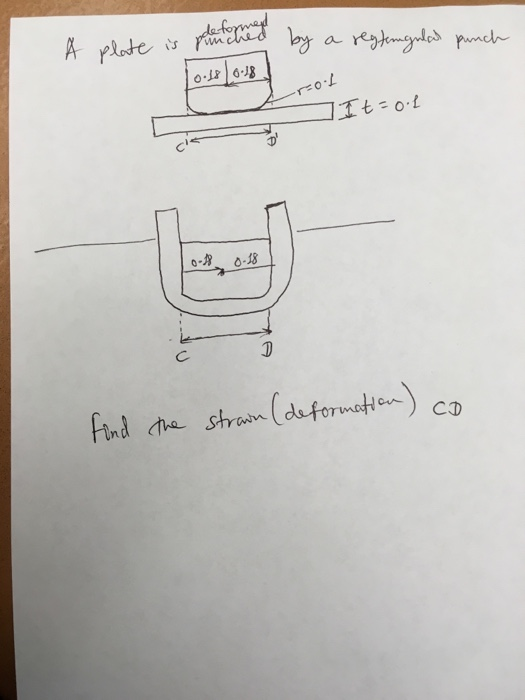 deformed
A plate is punched by a regtangular punch
0.18 0.18
r=0.1
t = 0.1
C' D'
0.18 0.18
C D
find the strain (deformation) CD